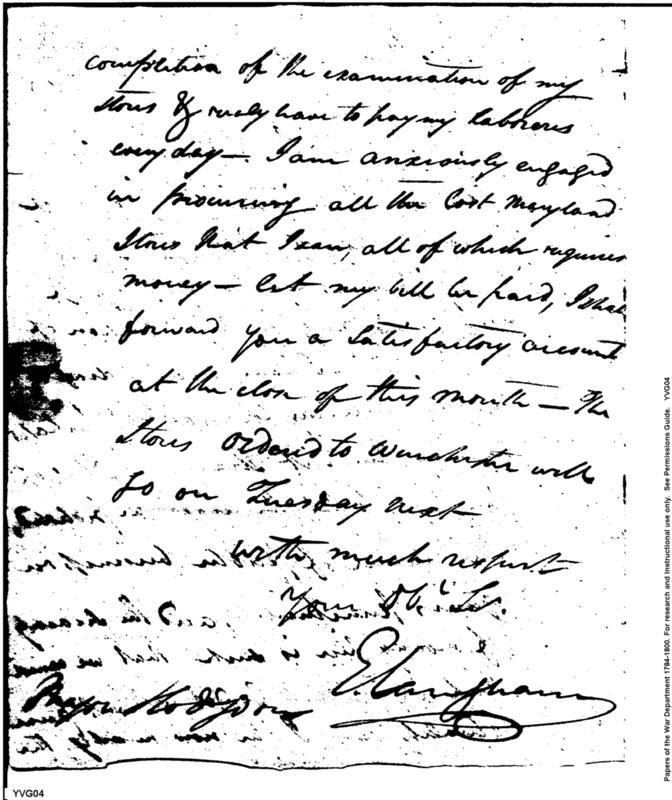 completion of the examination of my
Stores & rarely have to pay my laborers
every day — I am anxiously engaged
in procuring all the Cost Maryland
Stores that I can, all of which requires
money — let my bill be paid, I shall
forward you a Satisfactory account
at the close of this month — The
Stores ordered to Winchester will
go on Tuesday next
with much respect
Your Obt St.
E. Langham
Major Hodgdon
YVG04
Papers of the War Department 1784-1800. For research and Instructional use only. See Permissions Guide. YVG04